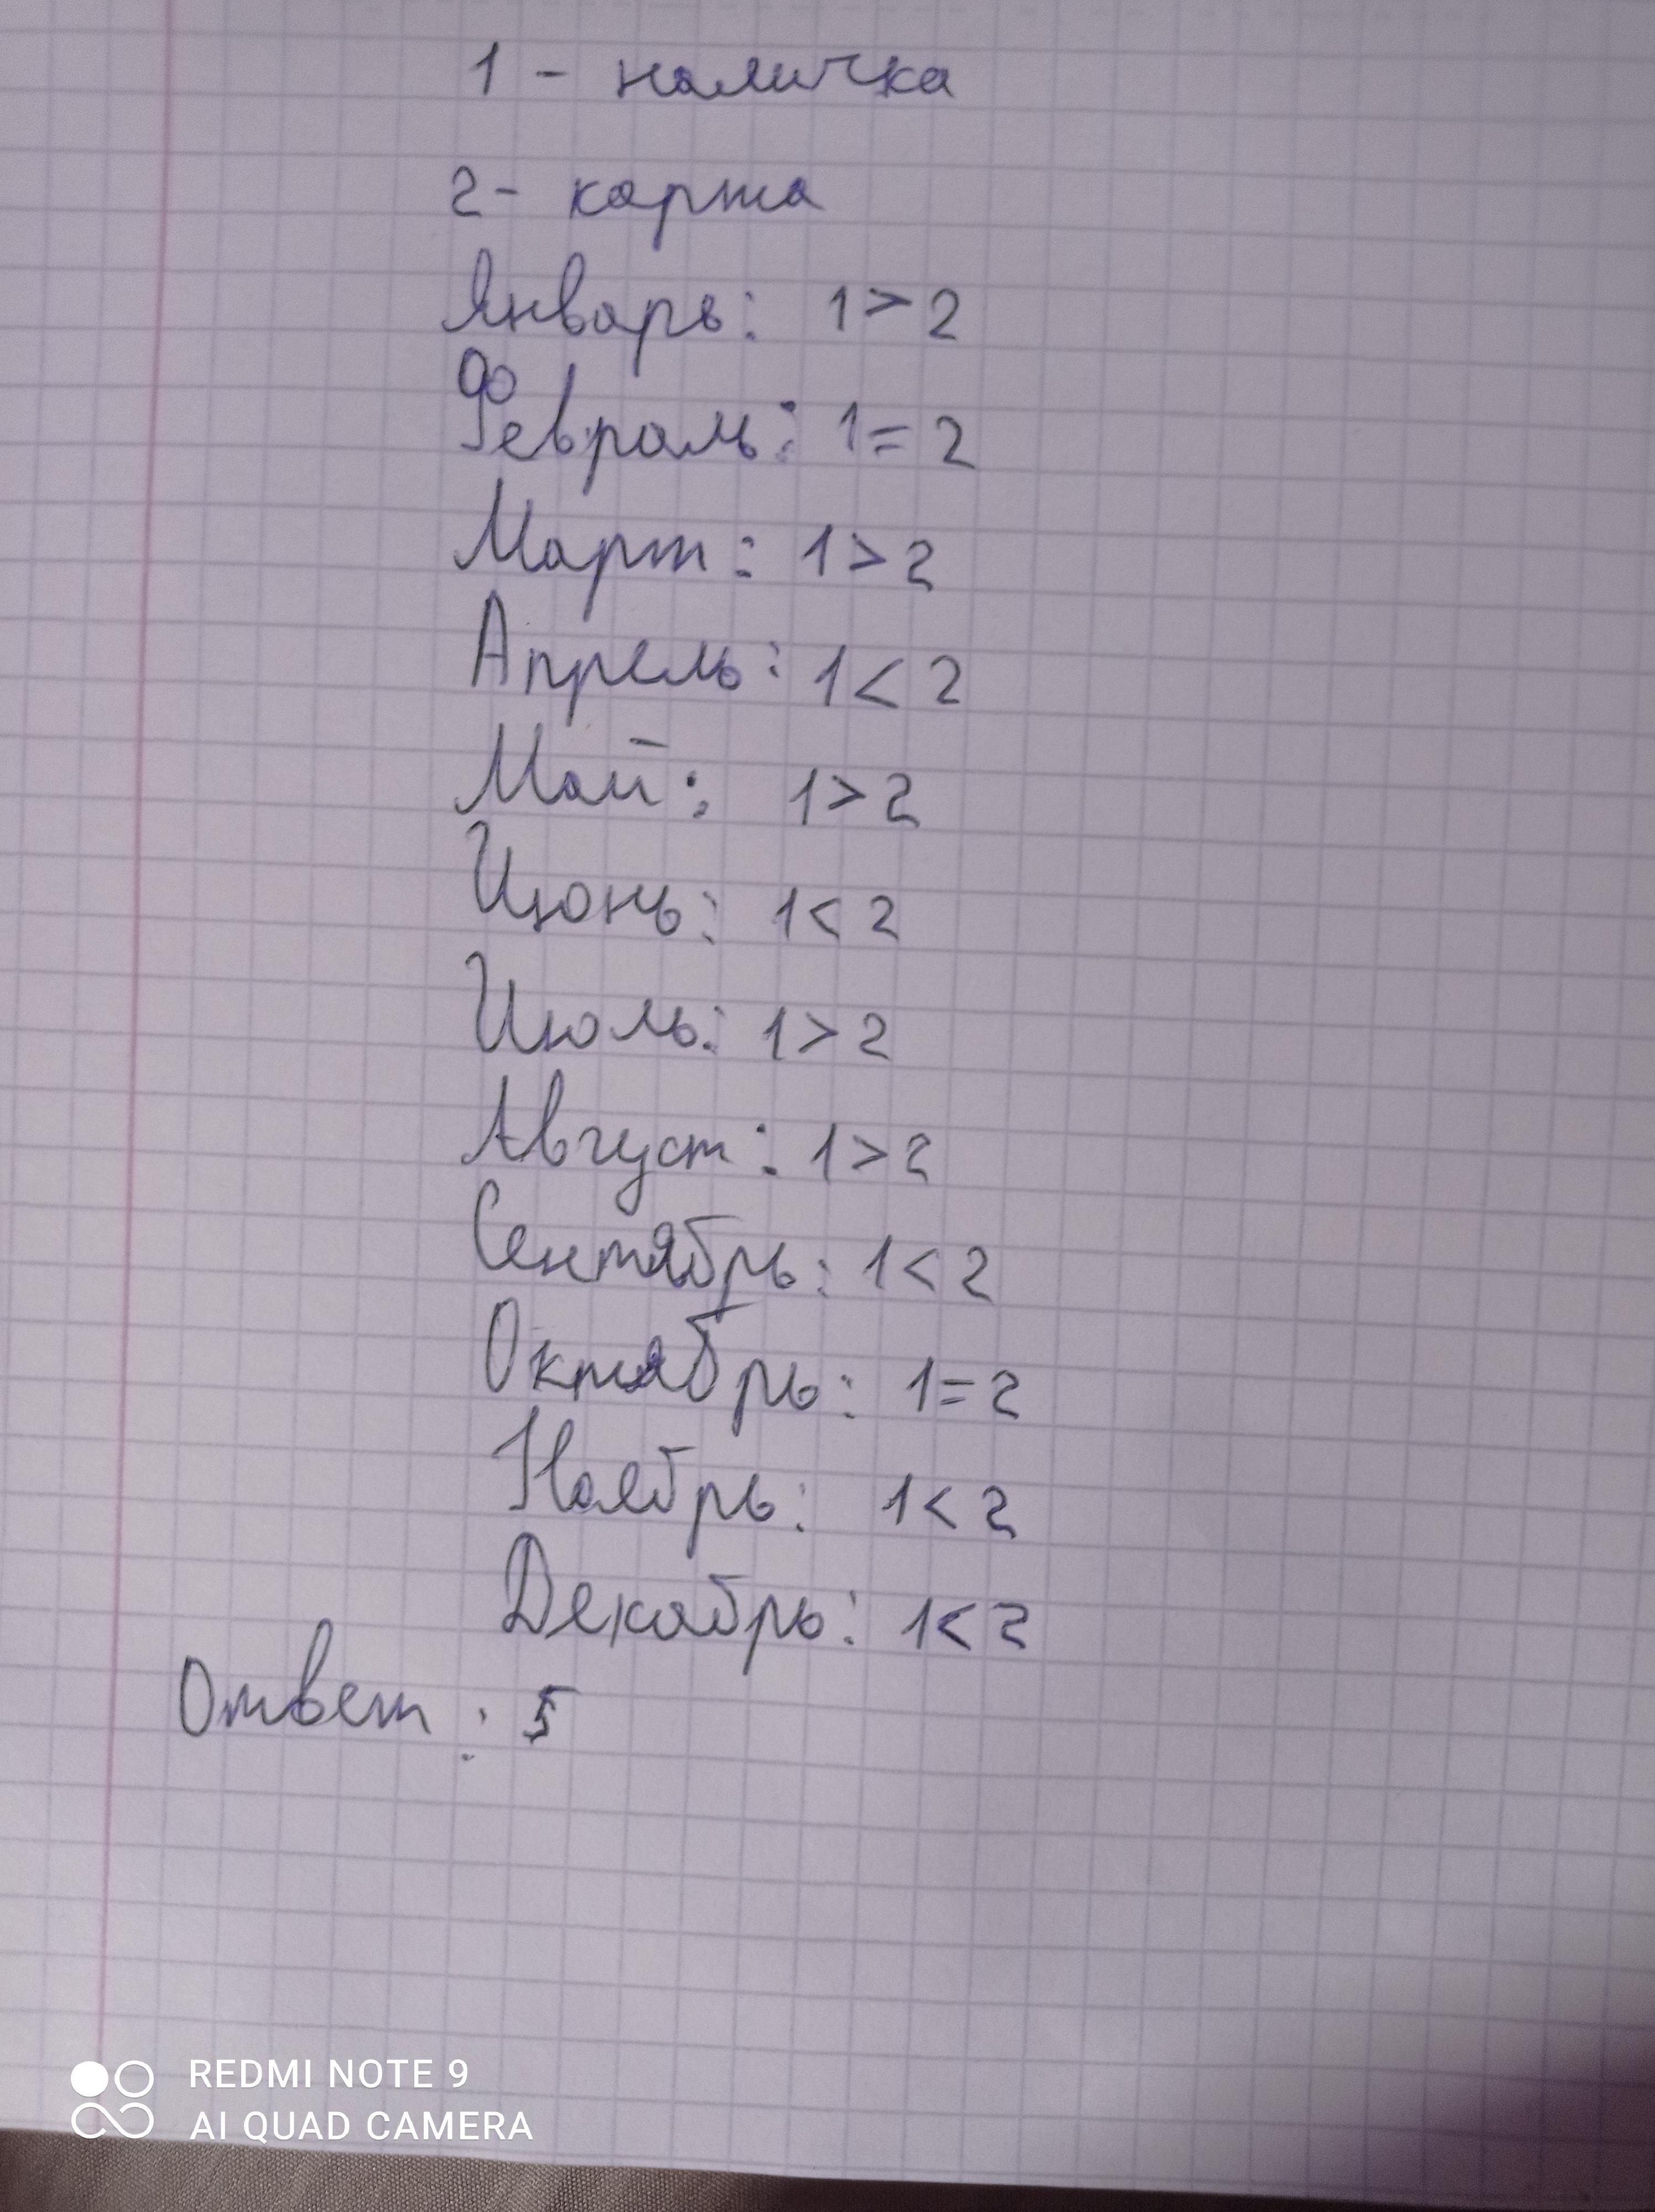 1 - наличка
2 - карта
Январь: 1 > 2
Февраль: 1 = 2
Март: 1 > 2
Апрель: 1 < 2
Май: 1 > 2
Июнь: 1 < 2
Июль: 1 > 2
Август: 1 > 2
Сентябрь: 1 < 2
Октябрь: 1 = 2
Ноябрь: 1 < 2
Декабрь: 1 < 2
Ответ: 5
REDMI NOTE 9
AI QUAD CAMERA